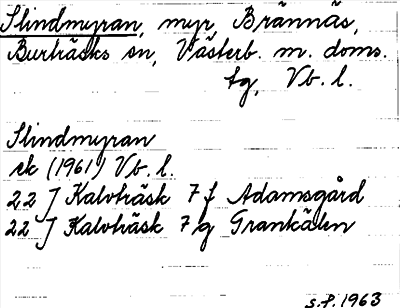 Slindmyran, myr, Brännäs,
Burträsks sn, Västerb. m. doms.
tg, Vb. l.
Slindmyran
ek (1961) Vb. l.
22 J Kalvträsk 7 f Adamsgård
22 J Kalvträsk 7 g Grankälen
s.f. 1963